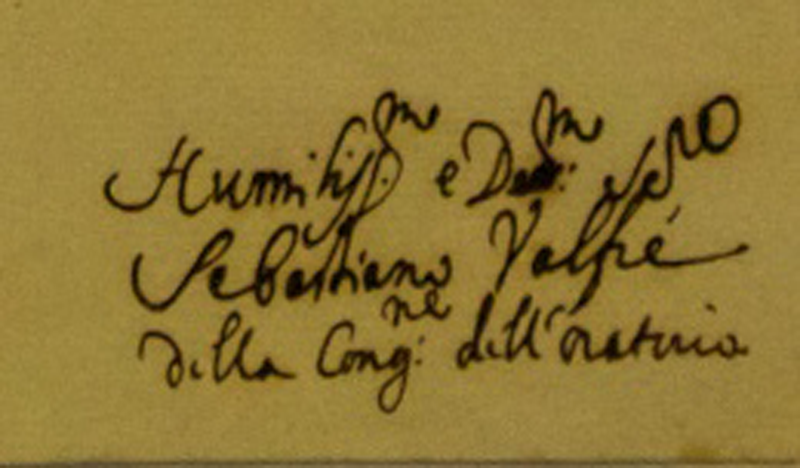 Humiliss.mo e Deu:mo Serro
Sebastiano Valfré
della Cong:ne dell'oratorio